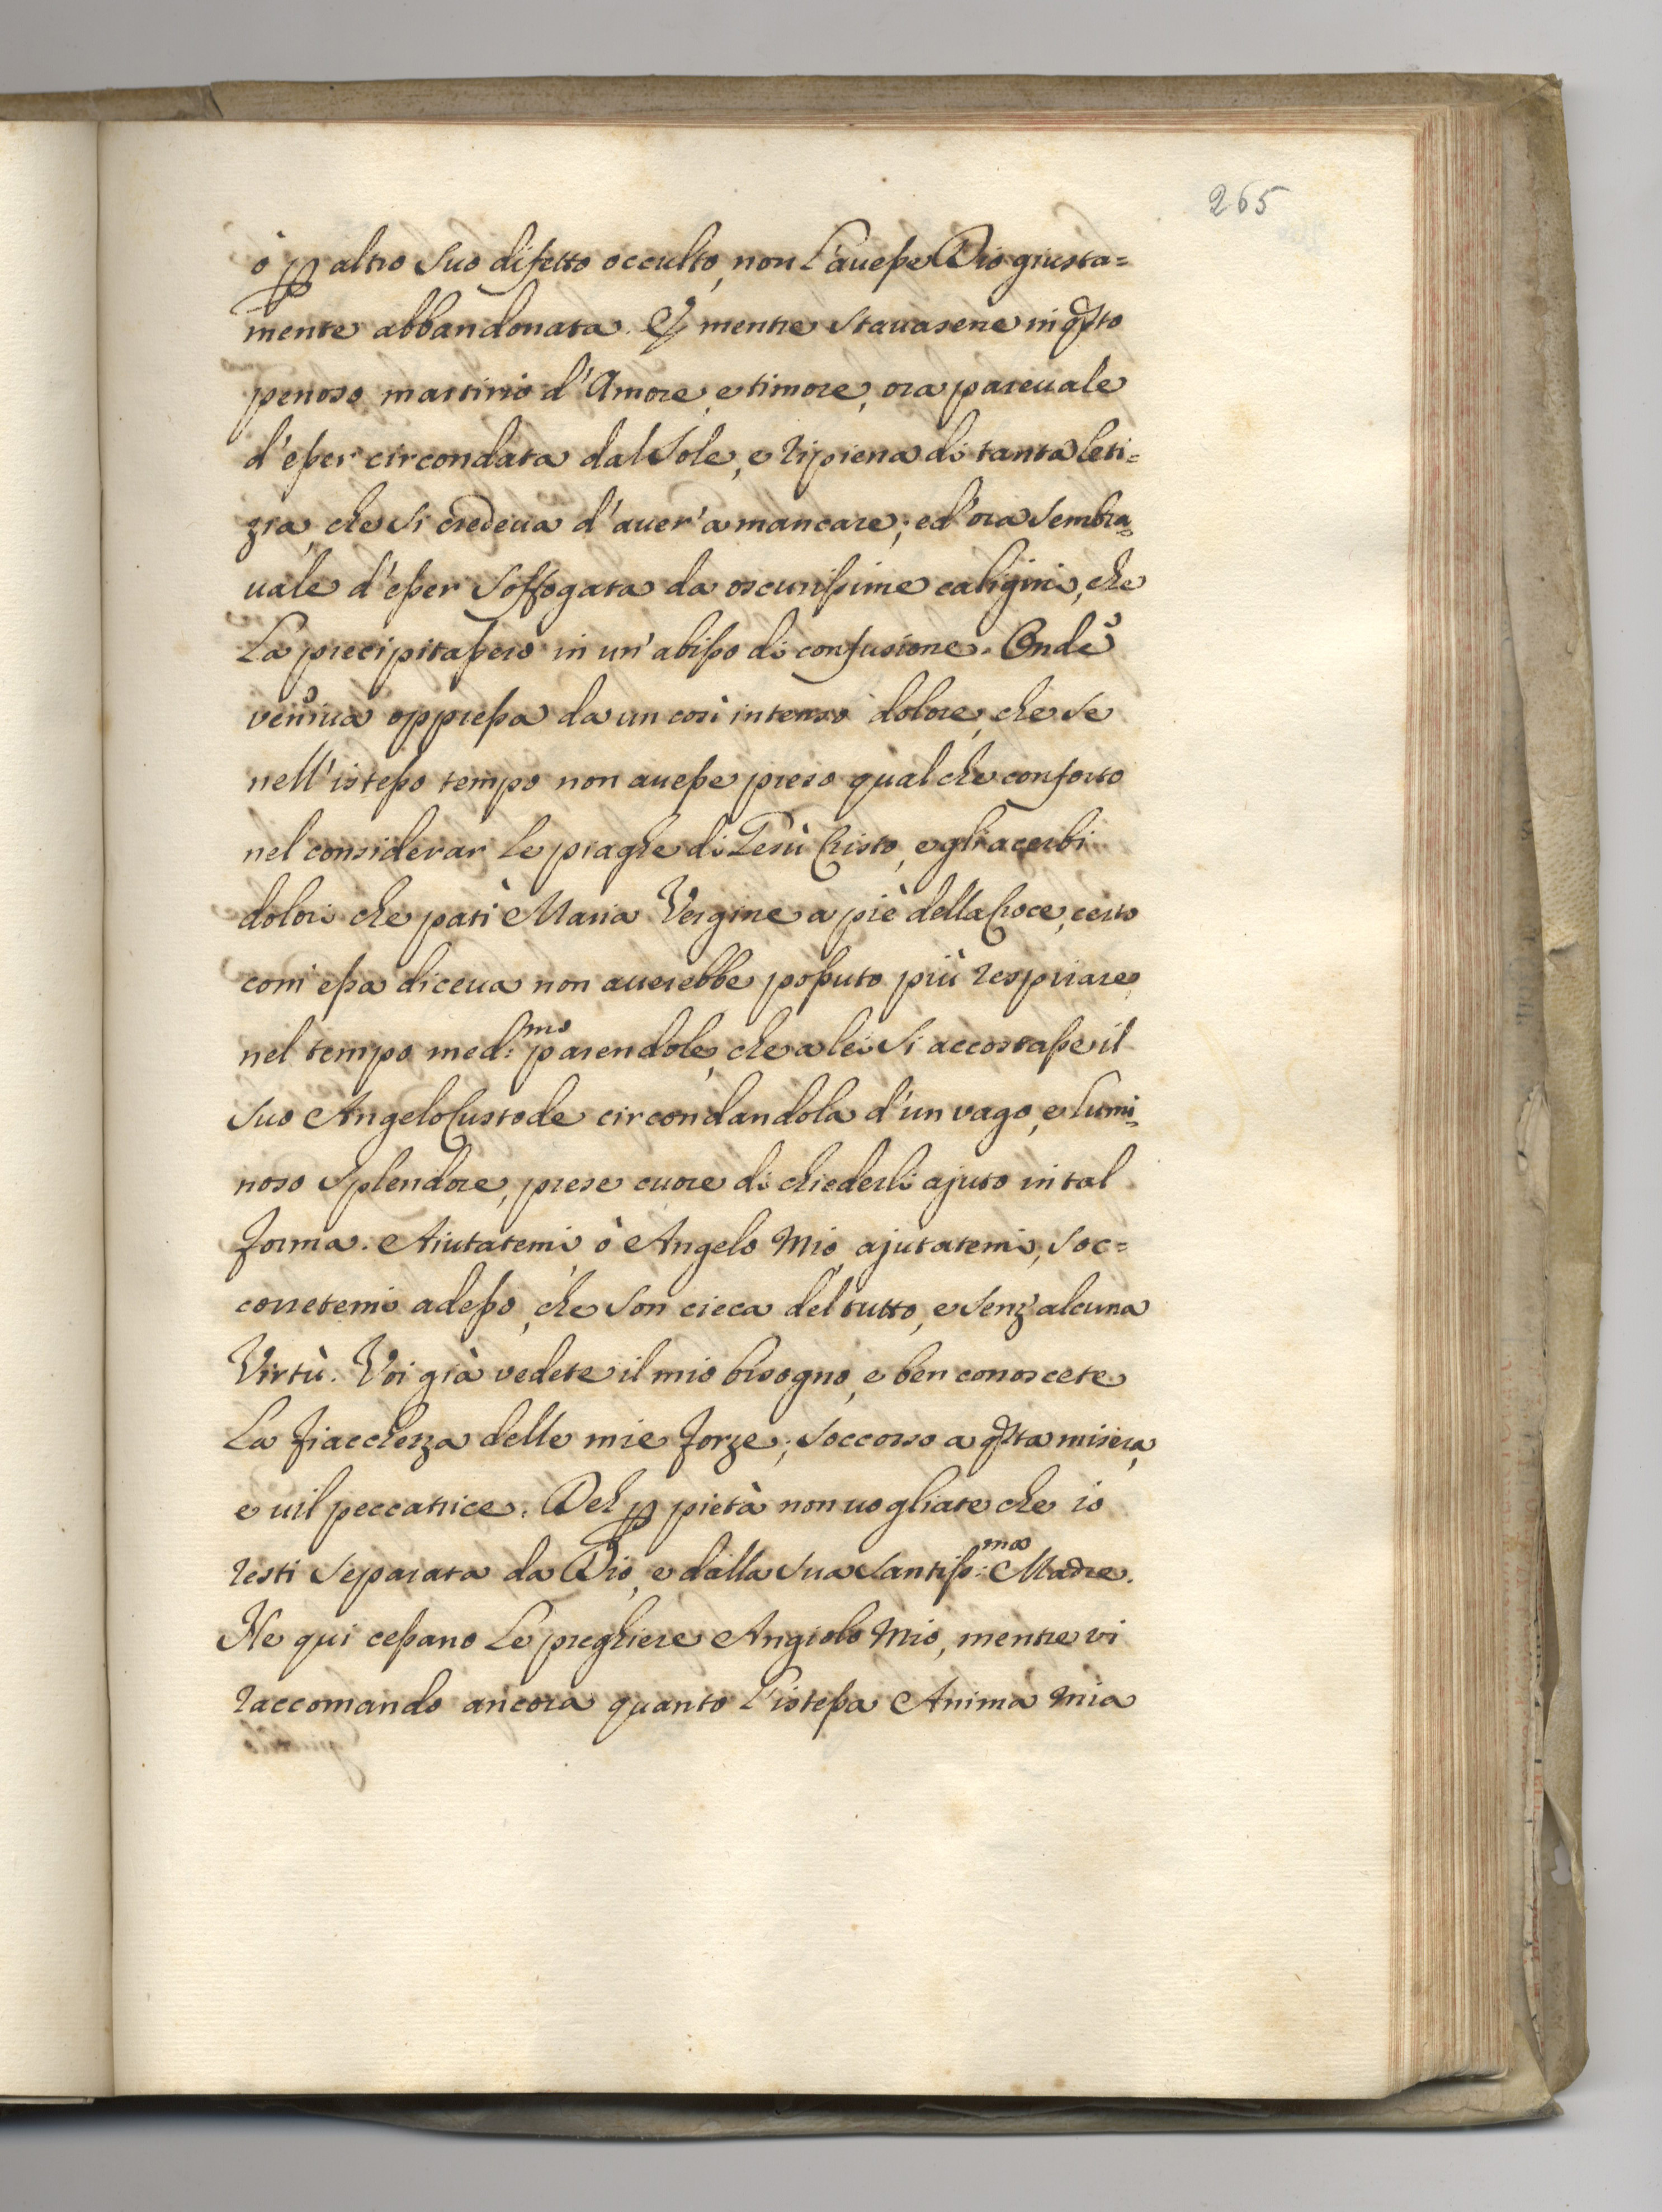 265
ò p altro suo difetto occulto, non l'avesse Dio giusta=
mente abbandonata. Et mentre stavasene in qsto
penoso martirio d'Amore, e timore, ora parevale
d'esser circondata dal Sole, e ripiena di tanta leti=
zia, che si credeva d'aver'a mancare; ed'ora sembra=
vale d'esser soffogata da oscurissime caligini, che
la precipitassero in un'abisso di confusione. Onde
veniva oppressa da un così intenso dolore, che se
nell'istesso tempo non avesse preso qualche conforto
nel considerar le piaghe di Gesù Cristo, e gli acerbi
dolori che patì Maria Vergine a piè della Croce, certo
com'essa diceva non averebbe possuto più respirare,
nel tempo med:mo parendole, che a lei si accostasse il
suo Angelo Custode circondandola d'un vago, e lumi=
noso splendore, prese cuore di chiederli ajuto in tal
forma. Aiutatemi, ò Angelo mio, ajutatemi, soc=
corretemi adesso, che son cieca del tutto, e senz'alcuna
Virtù. Voi già vedete il mio bisogno, e ben conoscete
la fiacchezza delle mie forze; soccorso a qsta misera,
e vil peccatrice. Deh p pietà non vogliate che io
resti separata da Dio, e dalla sua Santiss:ma Madre.
Ne qui cessano le preghiere Angiolo mio, mentre vi
raccomando ancora quanto l'istessa Anima mia